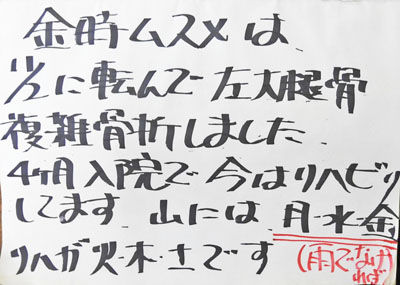 金時ムスメは、
11/2に転んで左大腿骨
複雑骨折しました.
4ヶ月入院で今はリハビリ
してます.山には、月・水・金、
リハガ火・木・土です(雨でなけ
れば